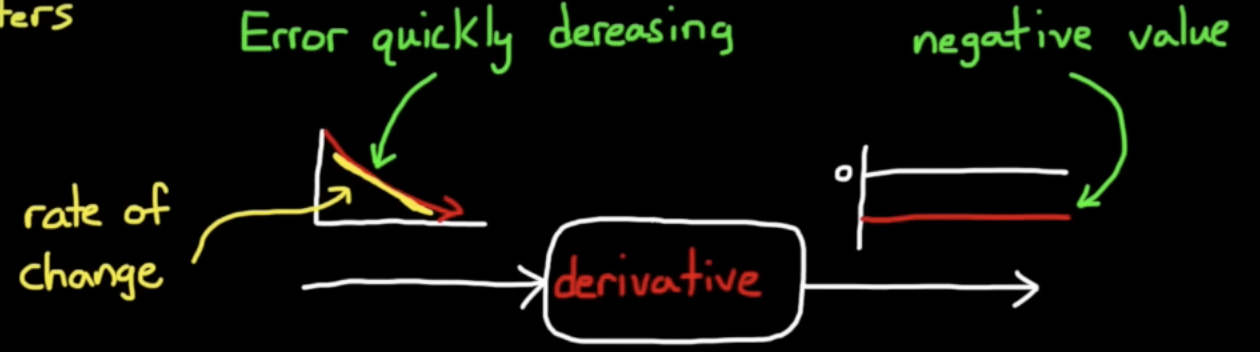 ters
Error quickly dereasing
negative value
rate of
change
0
derivative